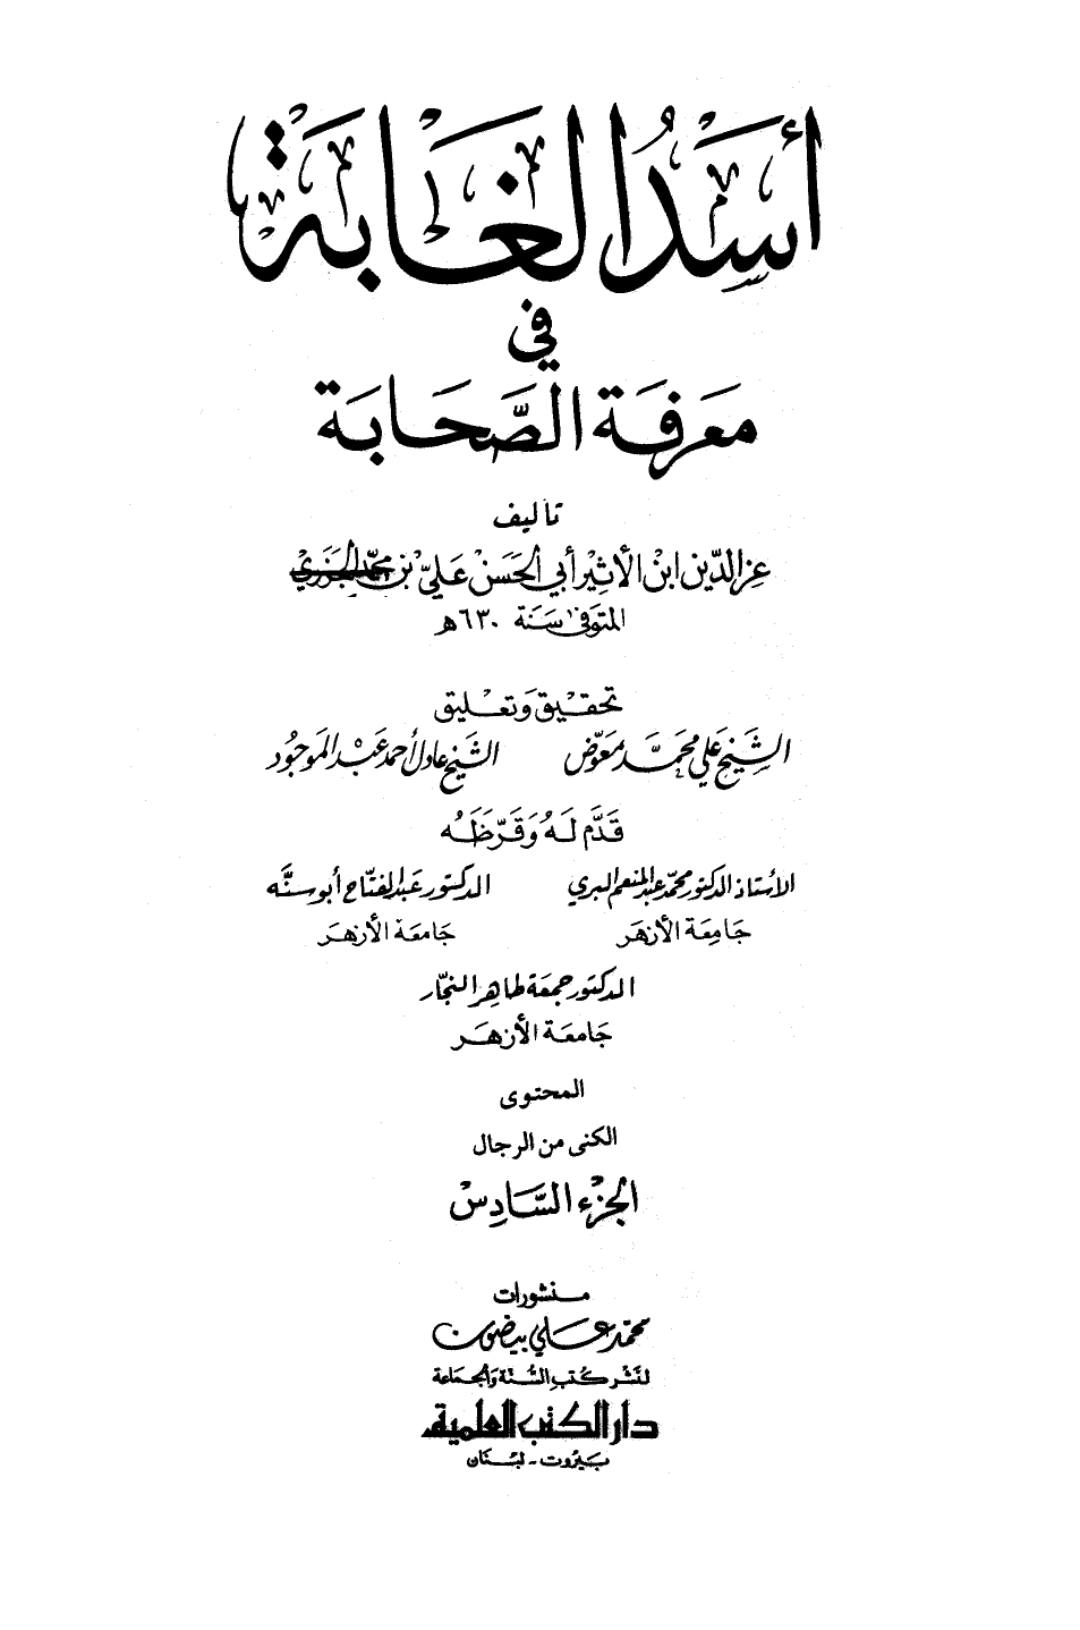 أسد الغابة
في
معرفة الصحابة
تأليف
عز الدين ابن الأثير أبي الحسن علي بن محمد الجزري
المتوفى سنة ٦٣٠هـ
تحقيق وتعليق
الشيخ علي محمد معوض الشيخ عادل أحمد عبد الموجود
قدم له وقرظه
الأستاذ الدكتور محمد عبد المنعم البري الدكتور عبد الفتاح أبو سنه
جامعة الأزهر جامعة الأزهر
الدكتور جمعة طاهر النجار
جامعة الأزهر
المحتوى
الكنى من الرجال
الجزء السادس
منشورات
محمد علي بيضون
لنشر كتب السنة والجماعة
دار الكتب العلمية
بيروت - لبنان